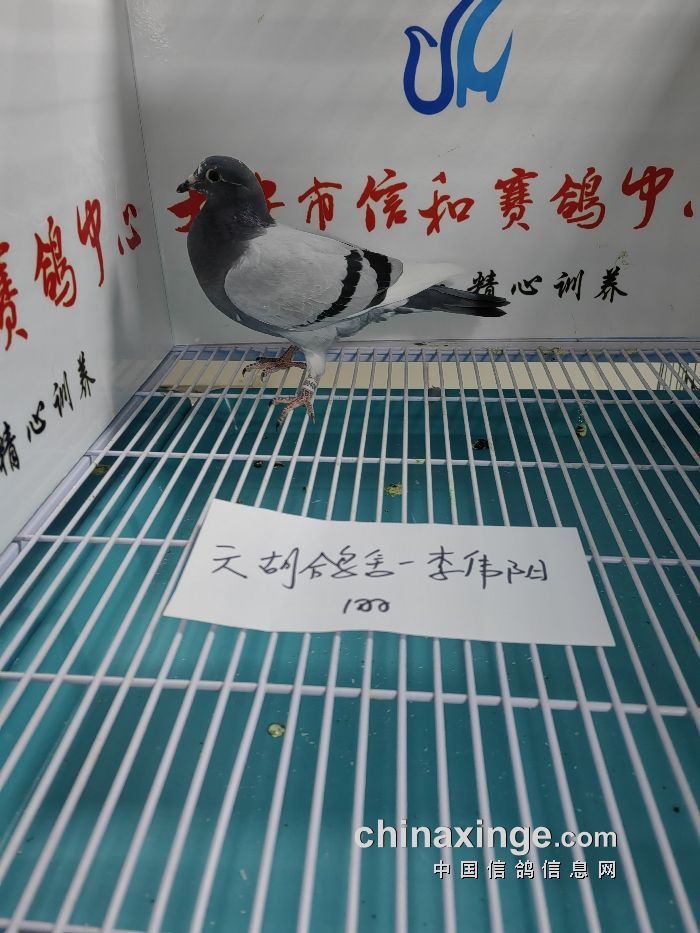 市信和赛鸽中心
精心训养
赛鸽中心
精心训养
天胡鸽舍-李伟阳
100
chinaxinge.com
中国信鸽信息网